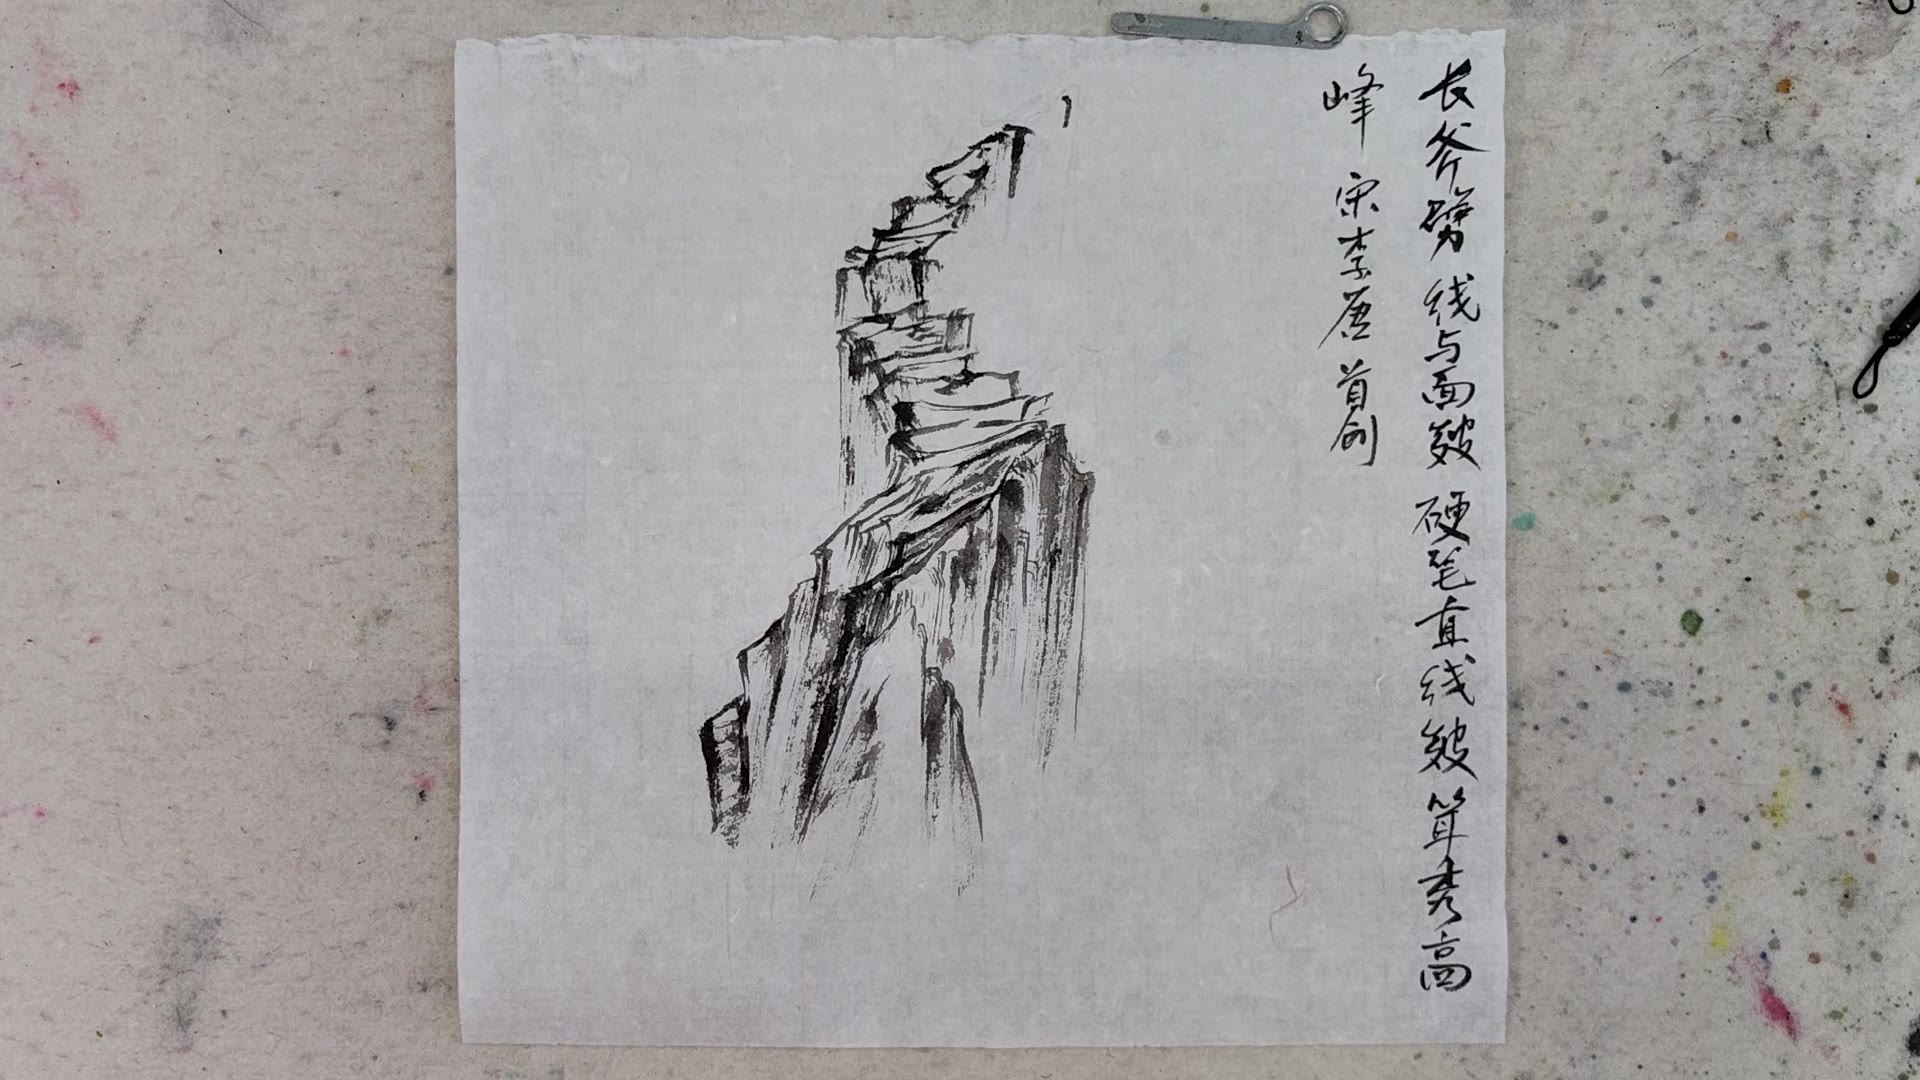 长斧劈 线与面皴 硬笔直线皴 耸秀高
峰 宋李唐 首创